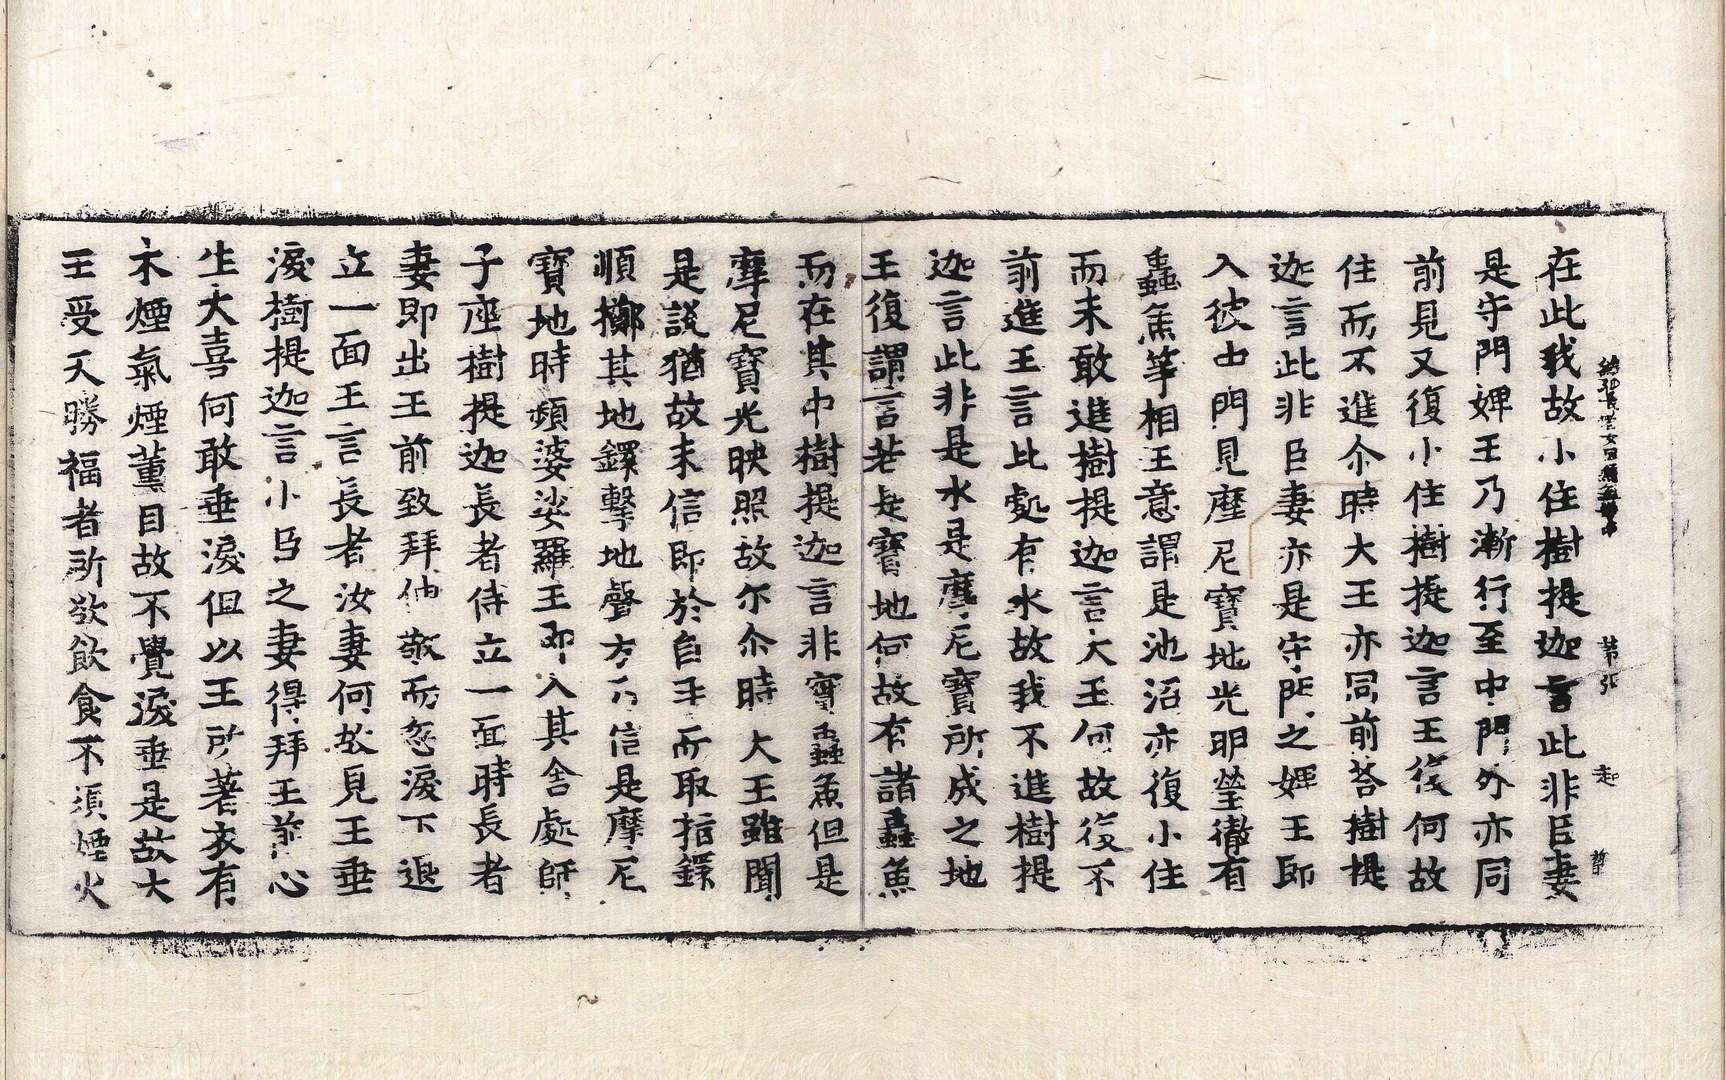 在此我故小住樹提迦言此非臣妻
是守門婢王乃漸行至中門外亦同
前見又復小住樹提迦言王復何故
住而不進尒時大王亦同前荅樹提
迦言此非臣妻亦是守門之婢王即
入彼中門見摩尼寶地光明瑩徹有
蟲魚等相王意謂是池沼亦復小住
而未敢進樹提迦言大王何故復不
前進王言此處有水故我不進樹提
迦言此非是水是摩尼寶所成之地
王復謂言若是寶地何故有諸蟲魚
而在其中樹提迦言非實蟲魚但是
摩尼寶光映照故尒尒時大王雖聞
是說猶故未信即於自手而取指鐶
順擲其地鐶擊地聲方乃信是摩尼
寶地時頻婆娑羅王即入其舍處師
子座樹提迦長者侍立一面時長者
妻即出王前致拜伸敬而忽淚下退
立一面王言長者汝妻何故見王垂
淚樹提迦言小臣之妻得拜王前心
生大喜何敢垂淚但以王所著衣有
木煙氣煙薰目故不覺淚垂是故大
王受天勝福者所欲飲食不須煙火